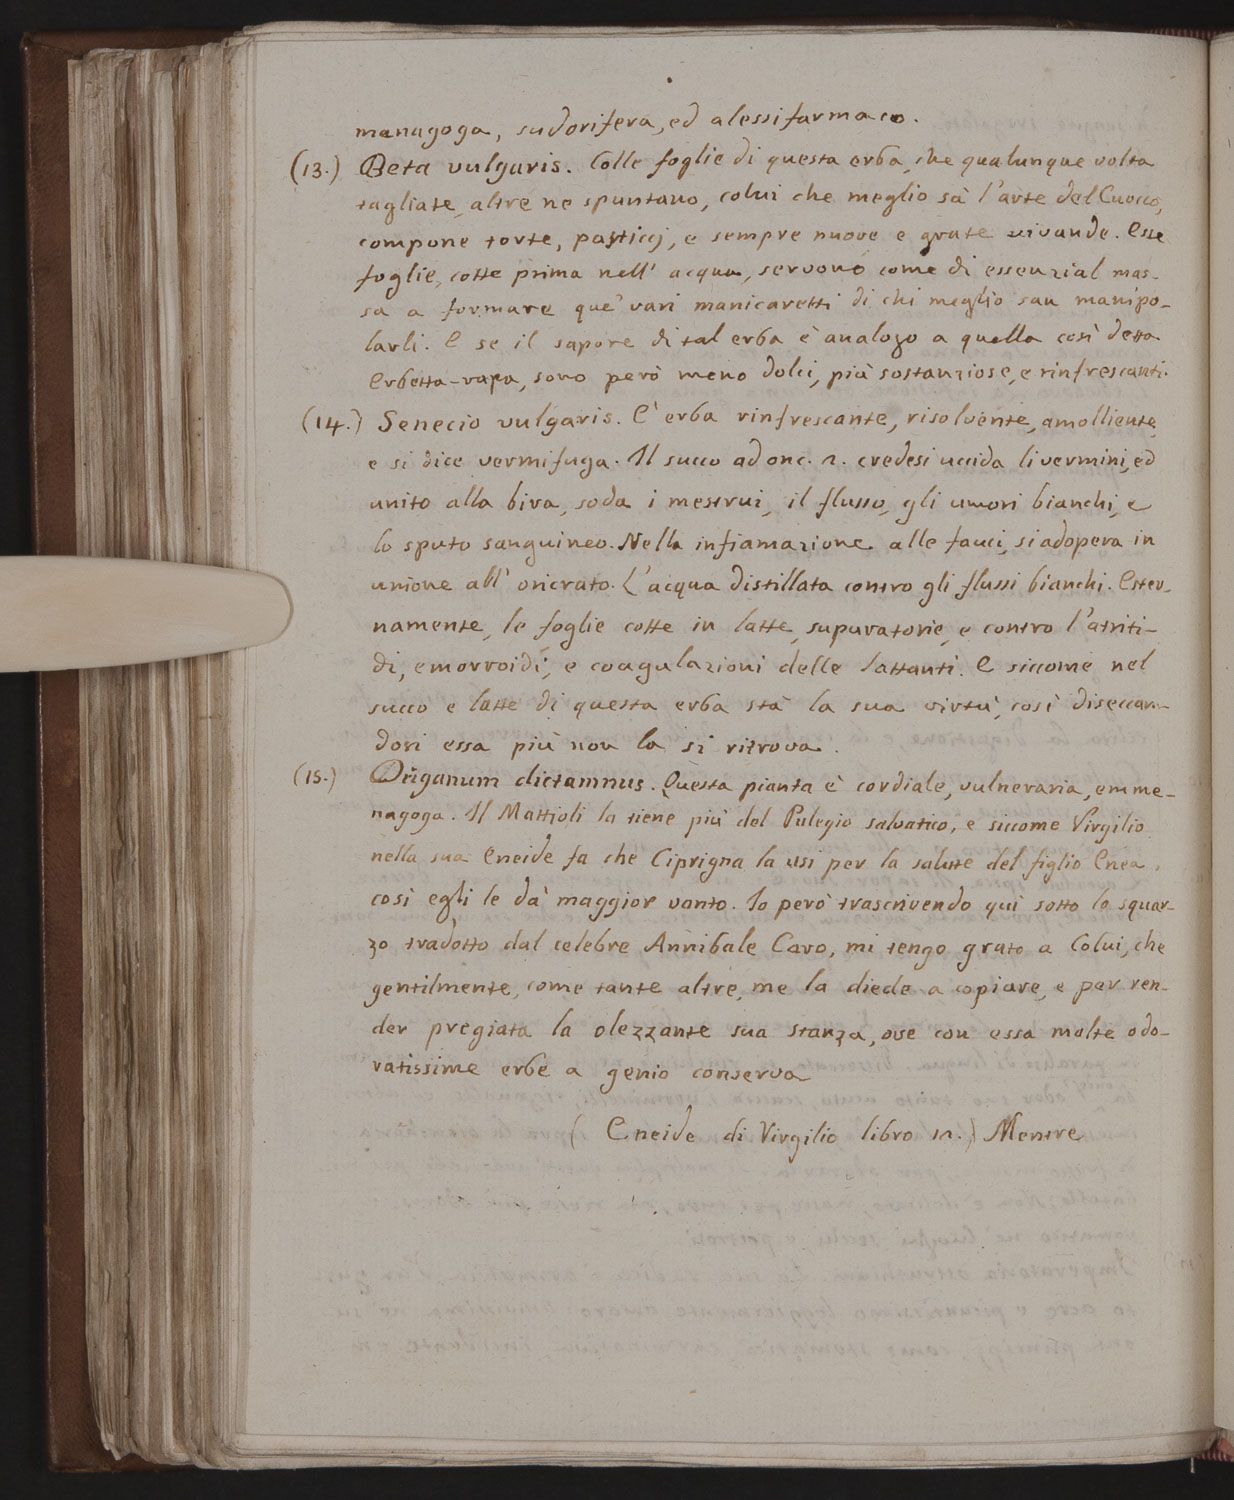 menagoga, sudorifera, ed alessifarmaco.
(13.) Beta vulgaris. Colle foglie di questa erba, che qualunque volta
tagliate, altre ne spuntano, colui che meglio sà l'arte del Cuoco,
compone torte, pasticcj, e sempre nuove e grate vivande. Esse
foglie, cotte prima nell' acqua, servono come di essenzial mas-
sa a formare que' vari manicaretti di chi meglio san manipo-
larli. E se il sapore di tal erba è analogo a quella così detta
Erbetta-rapa, sono però meno dolci, più sostanziose, e rinfrescanti.
(14.) Senecio vulgaris. E' erba rinfrescante, risolvente, amolliente,
e si dice vermifuga. Il succo ad onc. 2. credesi uccida li vermini, ed
unito alla bira, soda i mestrui, il flusso, gli umori bianchi, e
lo sputo sanguineo. Nella infiamazione alle fauci, si adopera in
unione all' oricrato. L'acqua distillata contro gli flussi bianchi. Ester-
namente, le foglie cotte in latte, supuratorie, e contro l'atriti-
di, emorroidi, e coagulazioni delle lattanti. E siccome nel
succo e latte di questa erba stà la sua virtù, così diseccan-
dosi essa più non la si ritrova.
(15.) Origanum dictamnus. Questa pianta è cordiale, vulneraria, emme-
nagoga. Il Mattioli la tiene più del Pulegio salvatico, e siccome Virgilio
nella sua Eneide fa che Ciprigna la usi per la salute del figlio Enea,
così egli le dà maggior vanto. Io però trascrivendo quì sotto lo squar-
zo tradotto dal celebre Annibale Caro, mi tengo grato a Colui, che
gentilmente, come tante altre, me la diede a copiare, e per ren-
der pregiata la olezzante sua stanza, ove con essa molte odo-
ratissime erbe a genio conserva
( Eneide di Virgilio libro 12.) Mentre